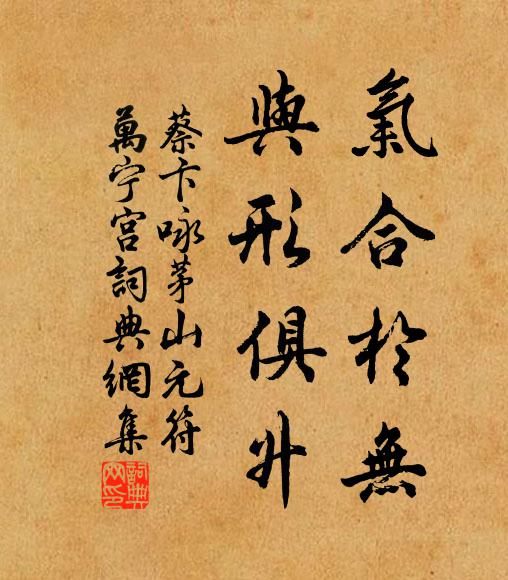 氣合於無
與形俱升
蔡卞咏茅山元符
萬宁宫詞典網集
詞典网印